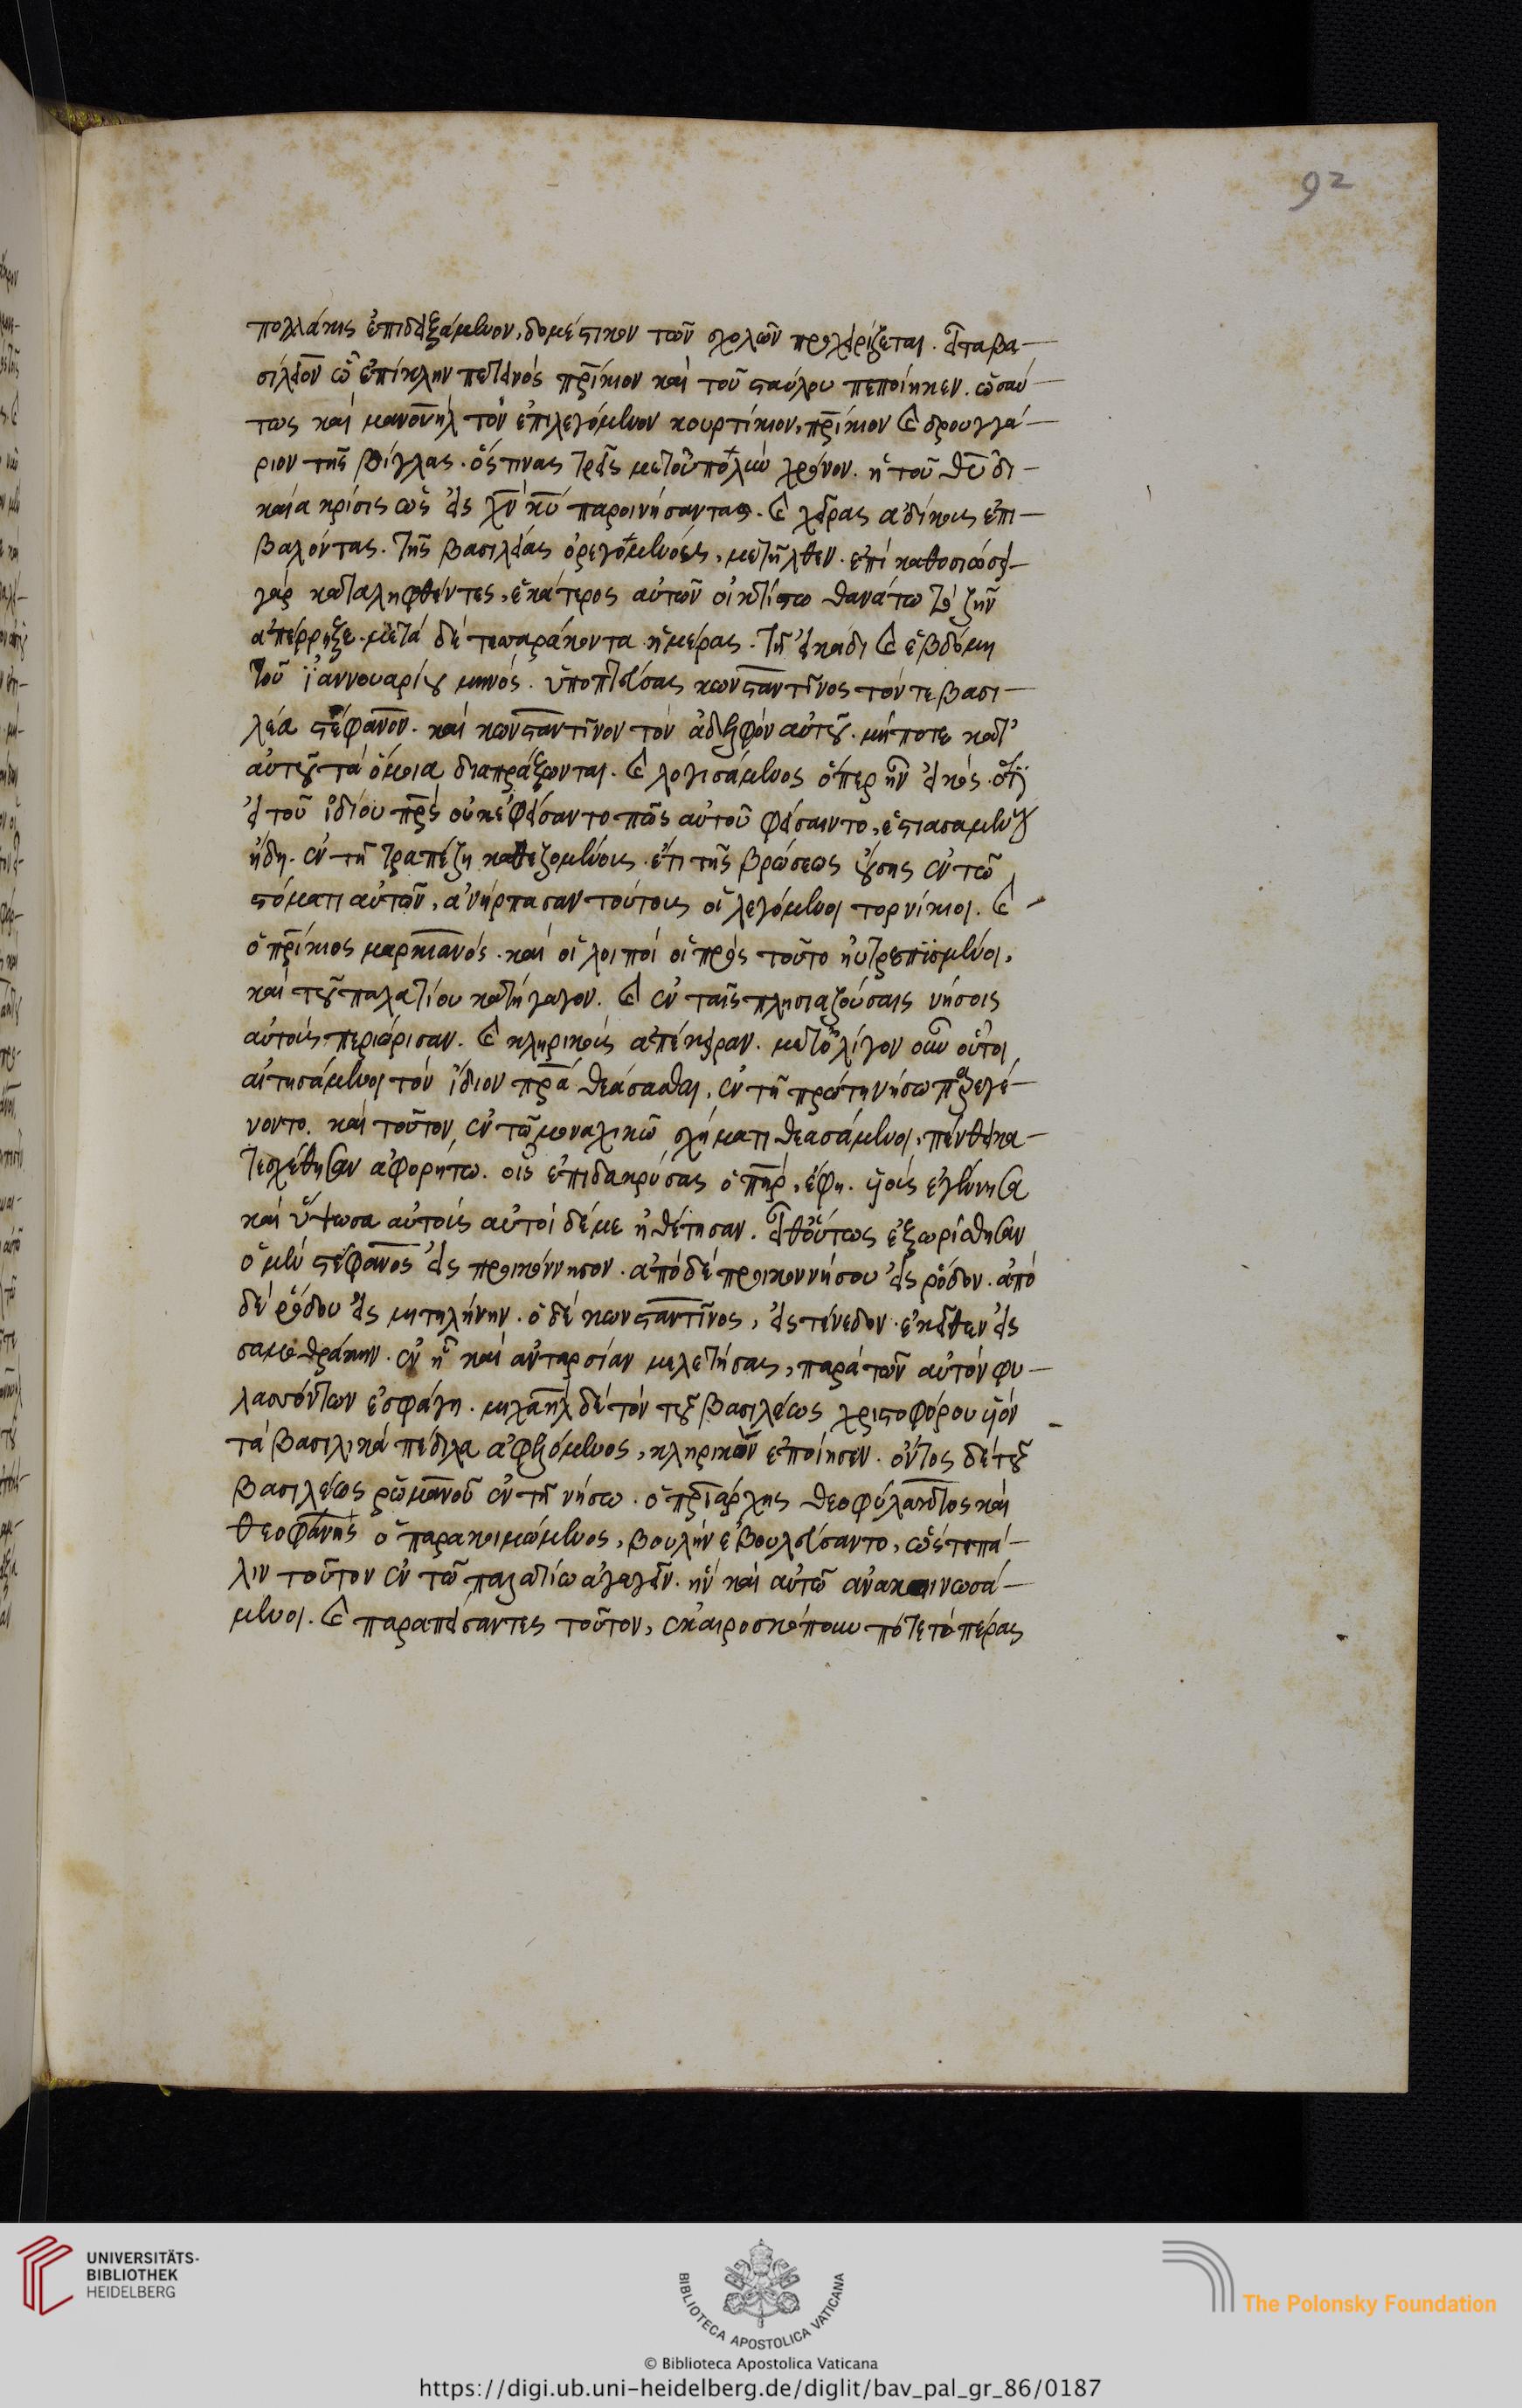 92
πολλάκις ἐπιδειξάμενον, δομέστικον τῶν σχολῶν προχειρίζεται. εἶτα βα-
σίλειον ᾧ ἐπίκλην πετεινὸς πρίκιον καὶ τοῦ σταύλου πεποίηκεν. ὡσαύ-
τως καὶ μανουὴλ τὸν ἐπιλεγόμενον κουρτίκιον, πρίκιον καὶ δρουγγά-
ριον τῆς βίγλας. οὕς τινας τρεῖς μετ' οὐ πολὺν χρόνον. ἡ τοῦ θυ δι-
καία κρίσις ὡς εἰς χν κυ παροινήσαντας. καὶ χεῖρας ἀδίκους ἐπι-
βαλόντας. τῆς βασιλείας ὀρεγομένους, μετῆλθεν. ἐπὶ καθοσιώσει
γὰρ καταληφθέντες, ἑκάτερος αὐτῶν οἰκτίστω θανάτω τὸ ζῆν
ἀπέρρηξε. μετὰ δὲ τεσσαράκοντα ἡμέρας. τῆ εἰκάδι καὶ ἑβδόμη
τοῦ ἰαννουαρίου μηνός. ὑποπτεύσας κωνσταντῖνος τόν τε βασι-
λέα στέφανον. καὶ κωνσταντῖνον τὸν ἀδελφὸν αὐτοῦ. μήποτε κατ'
αὐτοῦ τὰ ὅμοια διαπράξωνται. καὶ λογισάμενος ὅπερ ἦν εἰκός. ὅτι
εἰ τοῦ ἰδίου πρς οὐκ ἐφείσαντο πῶς αὐτοῦ φείσαιντο, ἑστιασαμένων
ἤδη. ἐν τῆ τραπέζη καθεζομένοις. ἔτι τῆς βρώσεως οὔσης ἐν τῶ
στόματι αὐτῶν, ἀνήρπασαν τούτους οἱ λεγόμενοι τορνίκιοι. καὶ
ὁ πρίκιος μαρκιανός. καὶ οἱ λοιποὶ οἱ πρὸς τοῦτο ηὐτρεπισμένοι,
καὶ τοῦ παλατίου κατήγαγον. καὶ ἐν ταῖς πλησιαζούσαις νήσοις
αὐτοὺς περιώρισαν. καὶ κληρικοὺς ἀπέκειραν. μετ' ὀλίγον οὖν οὗτοι
αἰτησάμενοι τὸν ἴδιον πρα θεάσασθαι, ἐν τῆ πρώτη νήσω παρεγέ-
νοντο. καὶ τοῦτον ἐν τῶ μοναχικῶ σχήματι θεασάμενοι, πένθει κα-
τεσχέθησαν ἀφορήτω. οἷς ἐπιδακρύσας ὁ πηρ, ἔφη. υἱοὺς ἐγέννησα
καὶ ὕψωσα αὐτοὶς αὐτοὶ δέ με ἠθέτησαν. εἶθ' οὕτως ἐξωρίσθησαν
ὁ μὲν στέφανος εἰς προικόννησον. ἀπὸ δὲ προικοννήσου εἰς ῥόδον. ἀπὸ
δὲ ῥόδου εἰς μητηλήνην. ὁ δὲ κωνσταντῖνος, εἰς τένεδον. ἐκεῖθεν εἰς
σαμοθράκην. ἐν ᾗ καὶ ἀνταρσίαν μελετήσας, παρὰ τῶν αὐτὸν φυ-
λασσόντων ἐσφάγη. μιχαὴλ δὲ τὸν τοῦ βασιλέως χριστοφόρου υἱὸν
τὰ βασιλικὰ πέδιλα ἀφελόμενος, κληρικὸν ἐποίησεν. ὄντος δὲ τοῦ
βασιλέως ῥωμανοῦ ἐν τῆ νήσω. ὁ πριάρχης θεοφύλακτος καὶ
θεοφάνης ὁ παρακοιμώμενος, βουλὴν ἐβουλεύσαντο, ὥστε πά-
λιν τοῦτον ἐν τῶ παλατίω ἀγαγεῖν. ἣν καὶ αὐτῶ ἀνακοινωσά-
μενοι. καὶ παραπείσαντες τοῦτον, ἐκαιροσκόπουν πότε τὸ πέρας
UNIVERSITÄTS-
BIBLIOTHEK
HEIDELBERG
BIBLIOTECA APOSTOLICA VATICANA
© Biblioteca Apostolica Vaticana
The Polonsky Foundation
https://digi.ub.uni-heidelberg.de/diglit/bav_pal_gr_86/0187